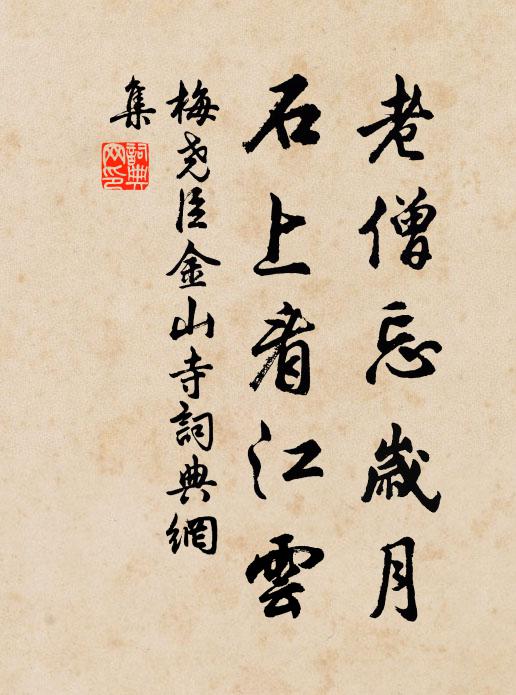 老僧忘歲月
石上看江雲
梅堯臣金山寺詞典網
集
詞典
网印